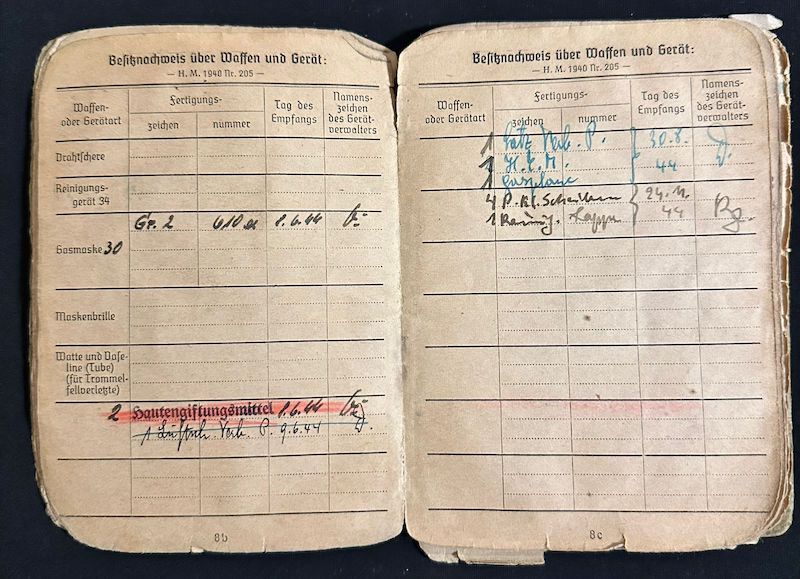 Besitznachweis über Waffen und Gerät:
— H. M. 1940 Nr. 205 —
Waffen-
oder Gerätart
Fertigungs-
zeichen
nummer
Tag des
Empfangs
Namens-
zeichen
des Gerät-
verwalters
Drahtschere
Reinigungs-
gerät 34
Gr. 2 610 8.6.44
Gasmaske 30
Maskenbrille
Watte und Vase-
line (Tube)
(für Trommel-
fellverletzte)
2 Hautengiftungsmittel 8.6.44
1 Luftsch. Verb. P. 9.6.44
8b
Besitznachweis über Waffen und Gerät:
— H. M. 1940 Nr. 205 —
Waffen-
oder Gerätart
Fertigungs-
zeichen
nummer
Tag des
Empfangs
Namens-
zeichen
des Gerät-
verwalters
1 Satz Verb. P. 30.8.
1 44
1 Gasplane
4 P. Kl. Scheiben 24.11.
1 44
8c